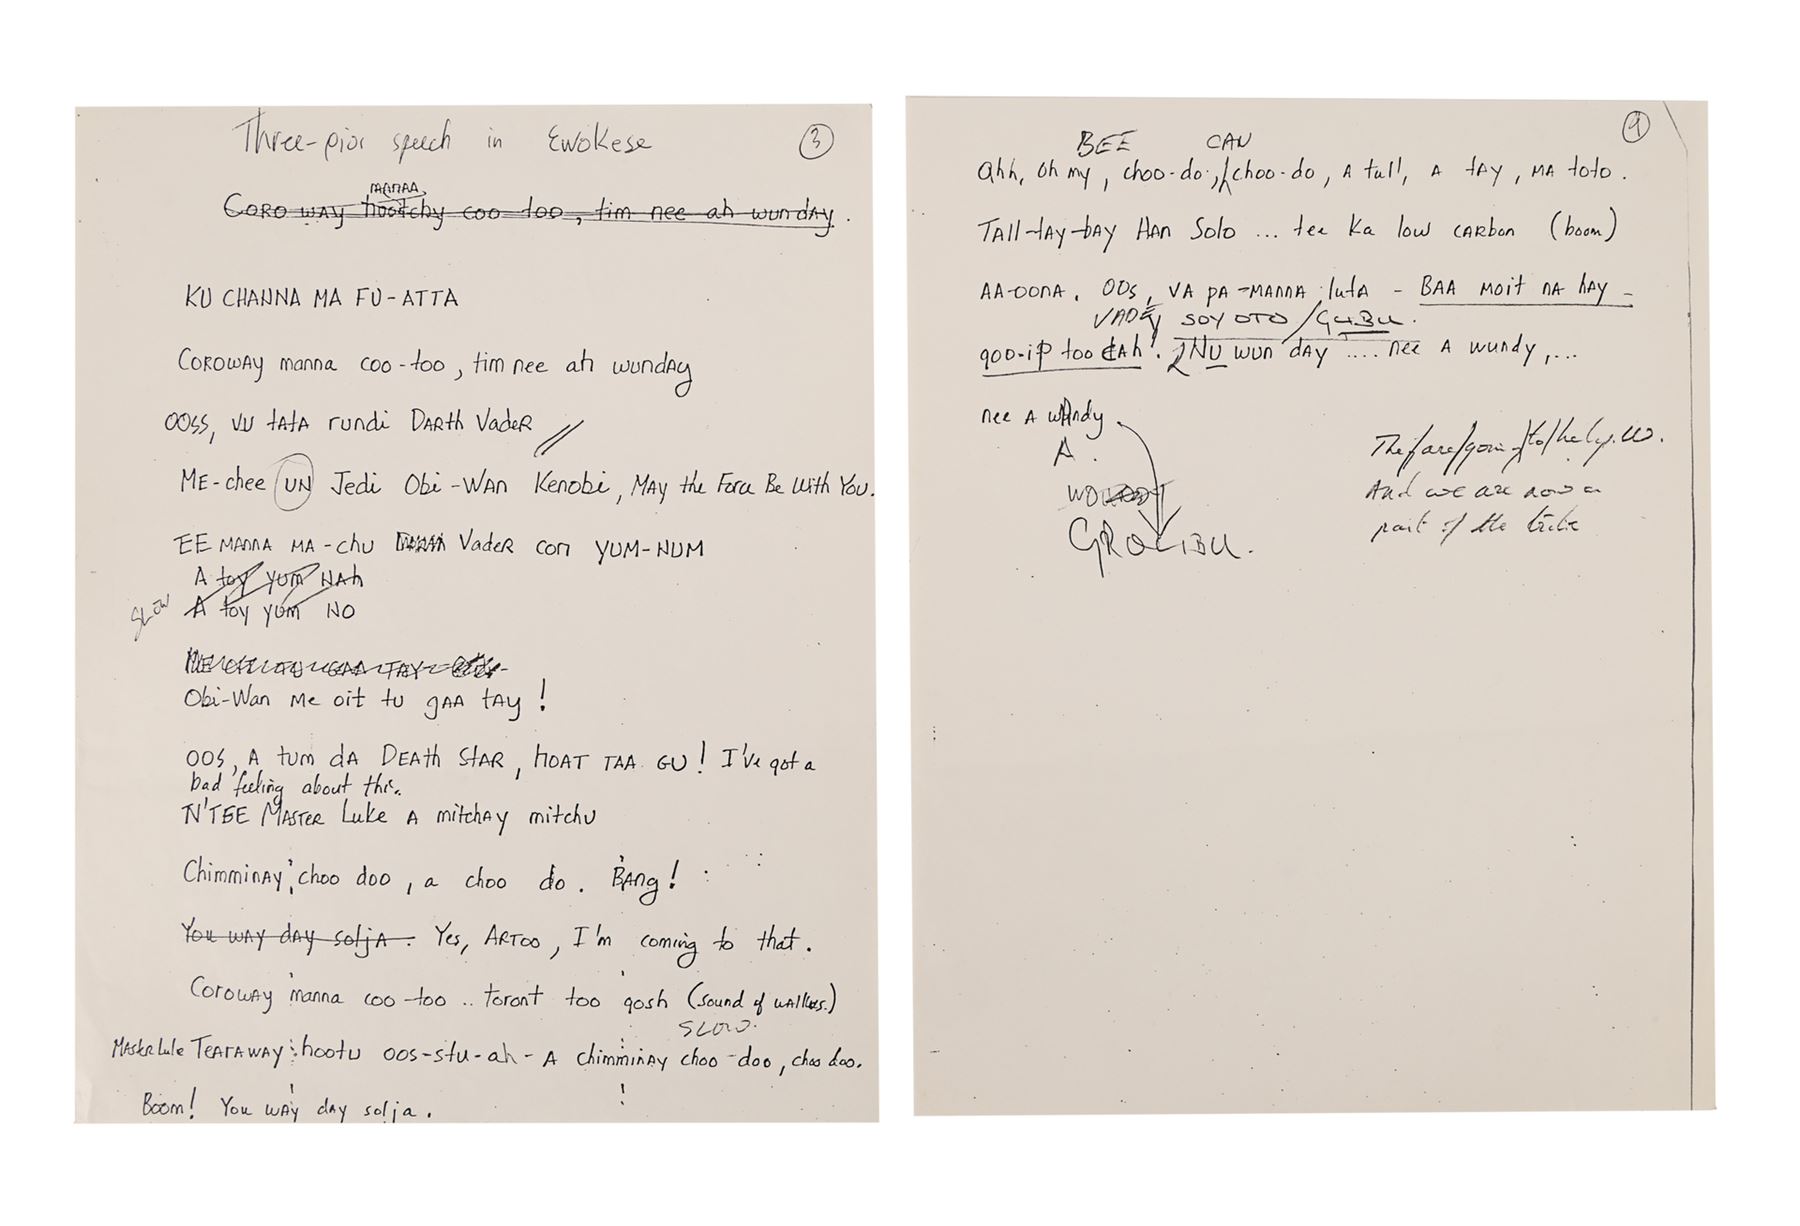 Three-pior speech in Ewokese
3
MANAA
CORO WAY hootchy coo too, tim nee ah wunday.
KU CHANNA MA FU-ATTA
COROWAY manna coo-too, tim nee ah wunday
OOSS, VU tATA rundi DARth VadeR
ME-chee UN Jedi Obi-WAN Kenobi, MAY the Force Be With You.
EE MANNA MA-chu VadeR con YUM-NUM
A toy yum NAh
SLOW A toy yum NO
Obi-Wan Me oit tu gAA tAy!
OOS, A tum dA DEAth StAR, hOAT TAA GU! I've got a
bad feeling about this.
N'TEE MASTER Luke A mitchAy mitchu
ChimminAy, choo doo, a choo do. BAng!
You WAY dAY soljA. Yes, ARTOO, I'm coming to that.
COROWAY manna coo-too.. toront too gosh (sound of WAlkers.)
SLOW.
MASter Lule TEARAWAY hootu oos-stu-ah-A chimminAy choo-doo, choo doo.
Boom! You WAY dAy solja.
9
BEE CAN
Ahh, Oh my, choo-do, choo-do, A tull, A tAy, MA toto.
TAll-tAy-bAy HAn Solo ... tee Ka low CARbon (boom)
AA-OONA. OOS, VA PA-MANNA lutA - BAA MOIT NA hAy -
VADEY SOY OTO / GUBU.
goo-ip too cAh! NU WUN dAY .... nee A wundy,...
nee A wundy
A.
WO
GROUBU.
The/are/going/to/help. us.
And we are now a
part of the tribe